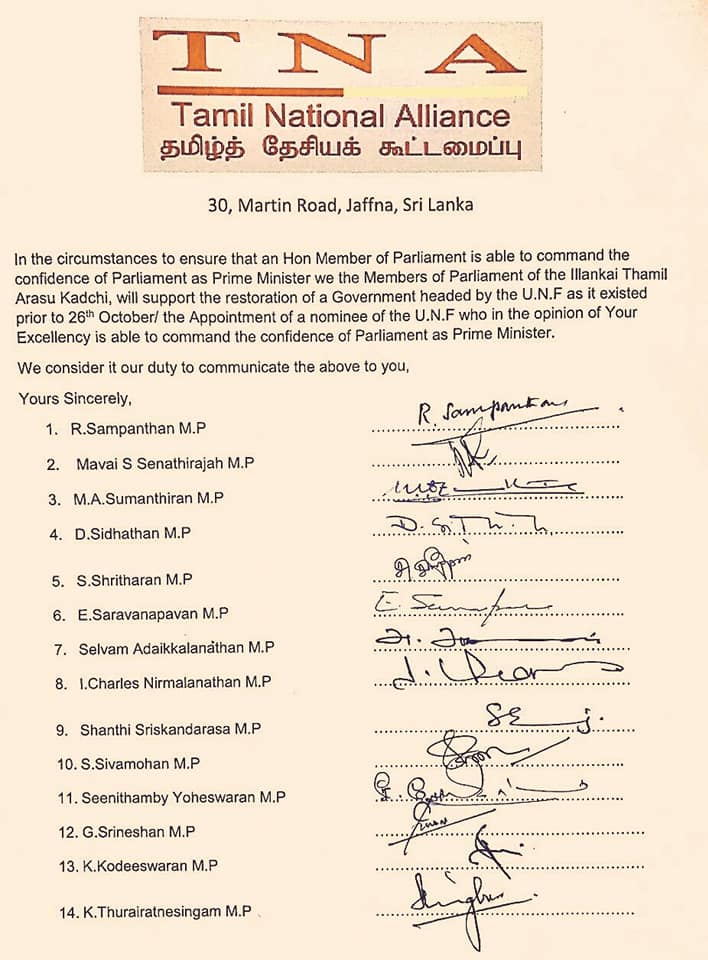 TNA
Tamil National Alliance
தமிழ்த் தேசியக் கூட்டமைப்பு
30, Martin Road, Jaffna, Sri Lanka
In the circumstances to ensure that an Hon Member of Parliament is able to command the
confidence of Parliament as Prime Minister we the Members of Parliament of the Illankai Thamil
Arasu Kadchi, will support the restoration of a Government headed by the U.N.F as it existed
prior to 26th October/ the Appointment of a nominee of the U.N.F who in the opinion of Your
Excellency is able to command the confidence of Parliament as Prime Minister.
We consider it our duty to communicate the above to you,
Yours Sincerely,
1. R.Sampanthan M.P R. Sampanthan
2. Mavai S Senathirajah M.P
3. M.A.Sumanthiran M.P
4. D.Sidhathan M.P
5. S.Shritharan M.P
6. E.Saravanapavan M.P
7. Selvam Adaikkalanathan M.P
8. I.Charles Nirmalanathan M.P
9. Shanthi Sriskandarasa M.P
10. S.Sivamohan M.P
11. Seenithamby Yoheswaran M.P
12. G.Srineshan M.P
13. K.Kodeeswaran M.P
14. K.Thurairatnesingam M.P